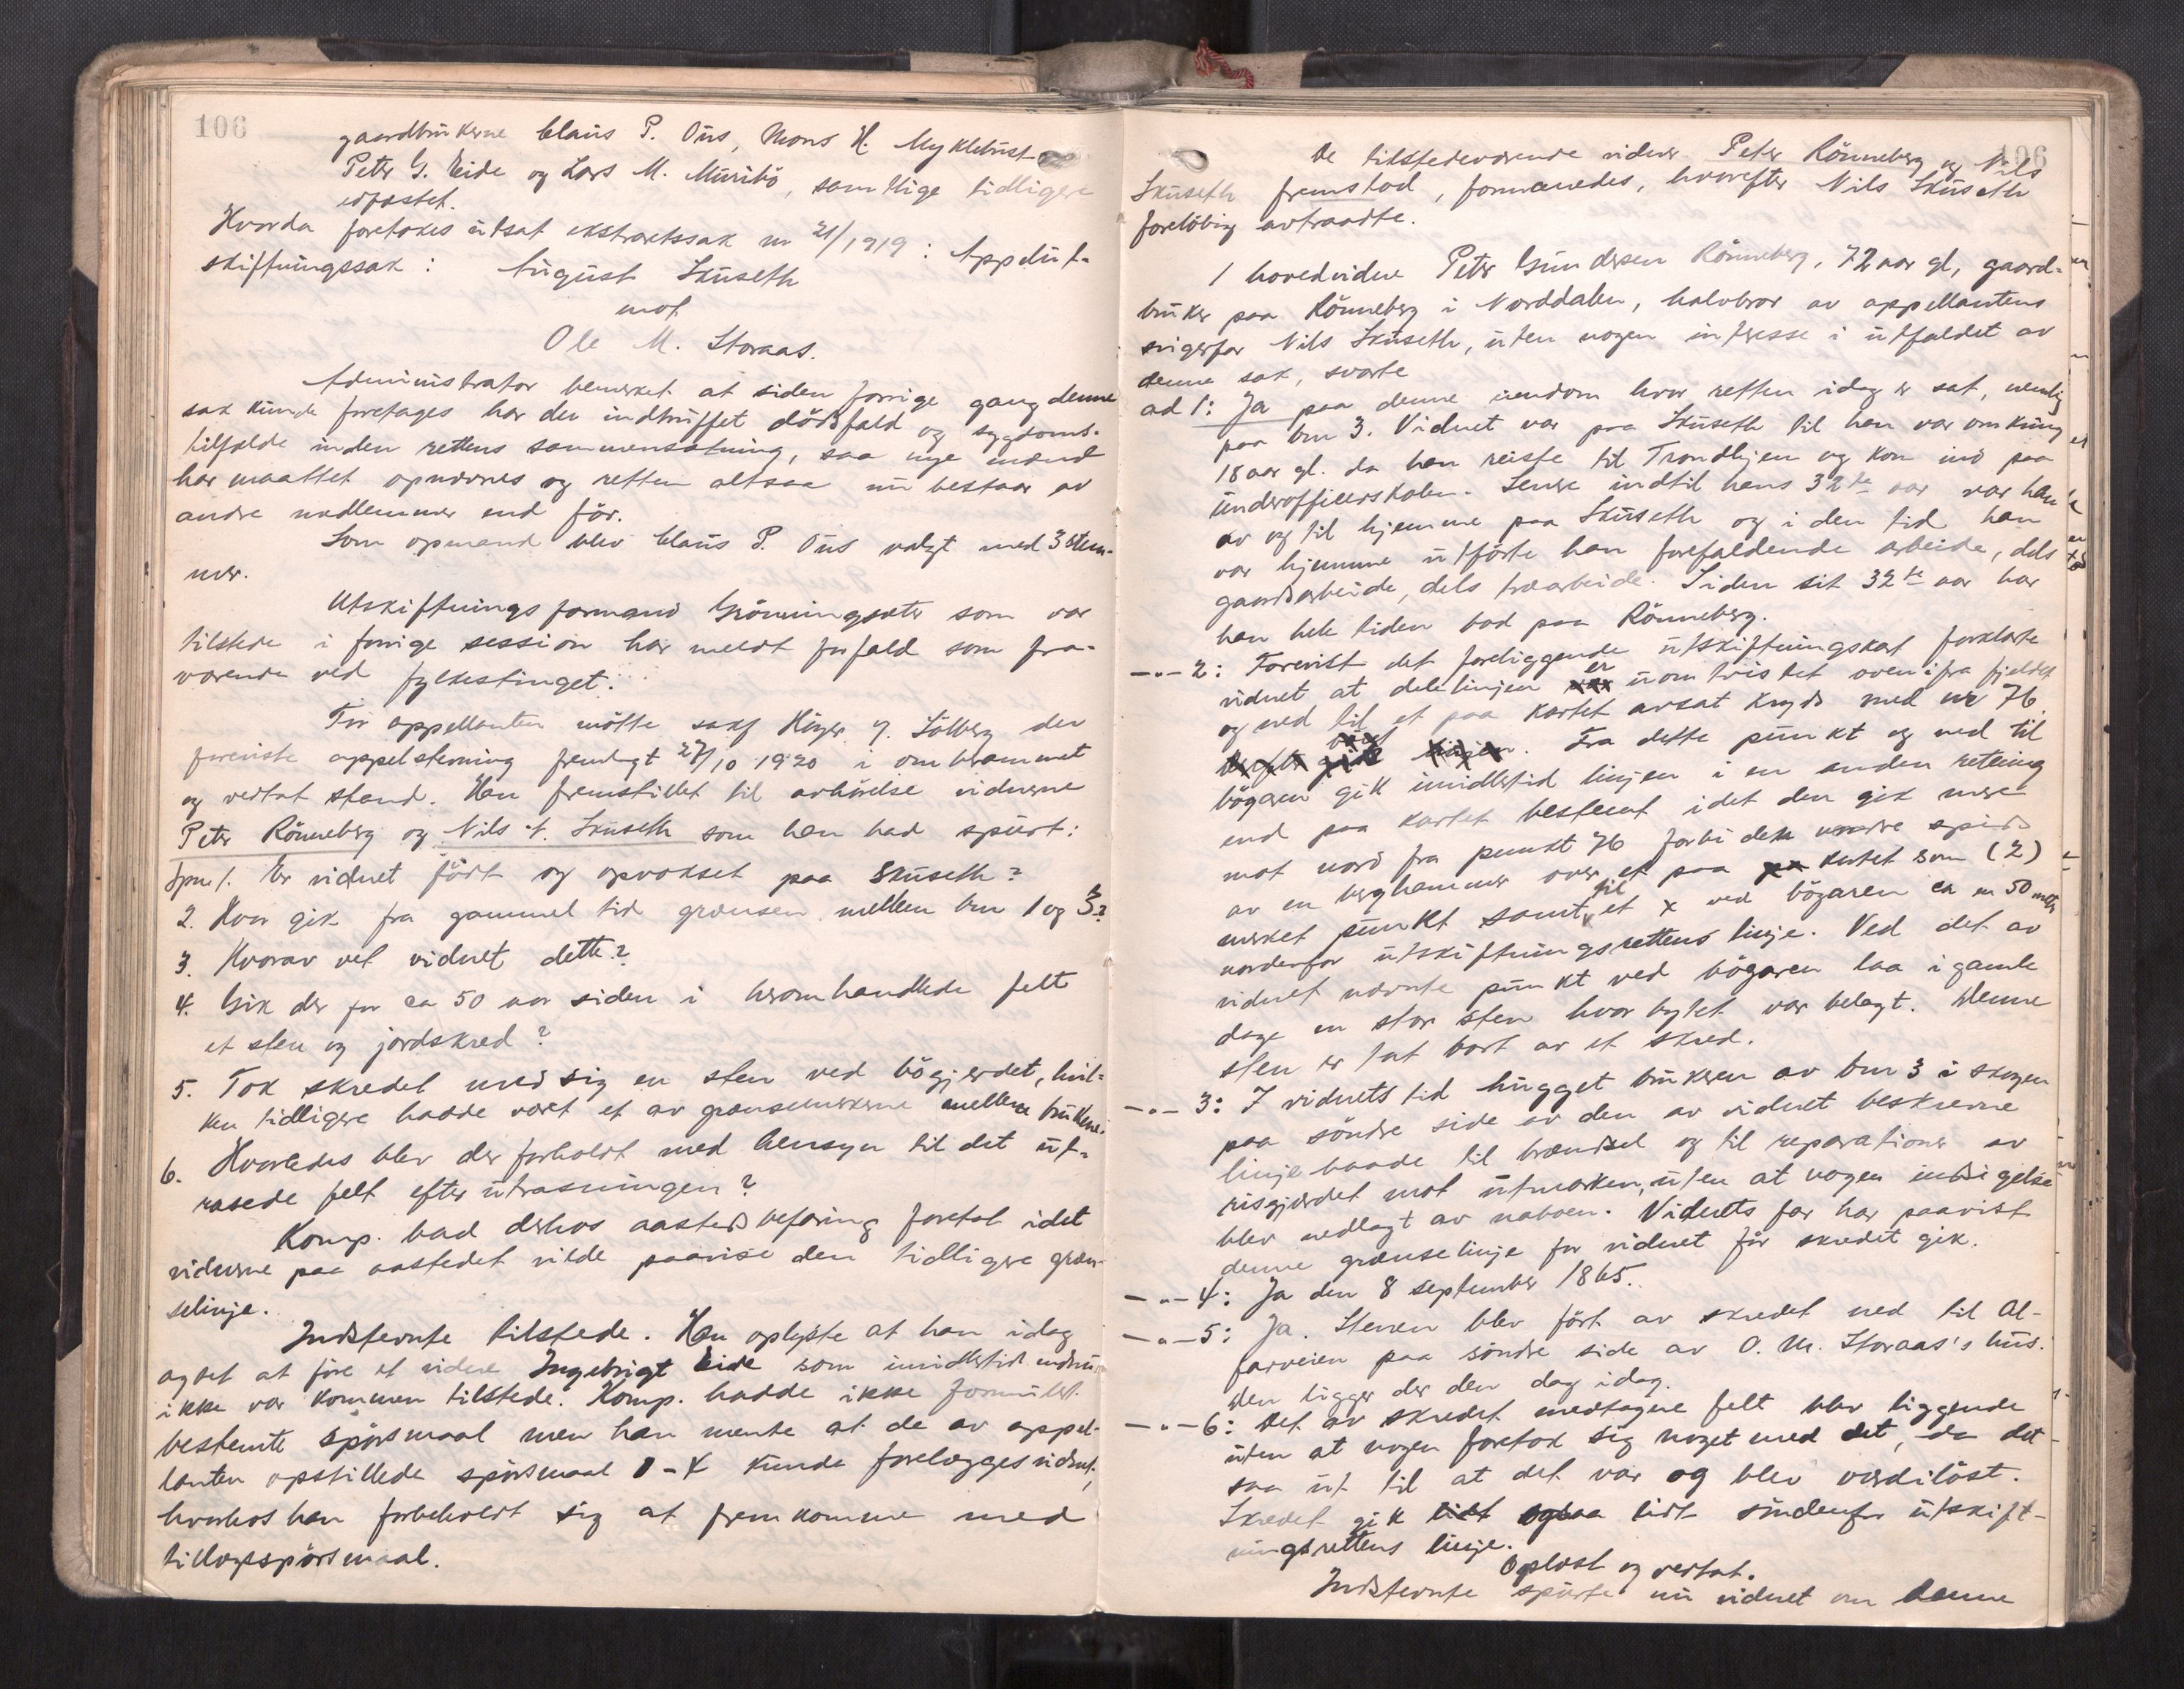 106
gaardbrukerne Claus P. Ous, Mons H. Myklebust
Peter G. Eide og Lars M. Muribö, samtlige tidligere
edfæstet.
Hvorda foretokes utsat ekstraretssak nr 21/1919: Appelut-
skiftningssak: August Skuseth
mot
Ole M. Storaas.
Administrator bemerket at siden forrige gang denne
sak kunde foretages har der indtruffet dödsfald og sygdoms-
tilfælde inden rettens sammensætning, saa nye mænd
har maattet opnævnes og retten altsaa nu bestaar av
andre medlemmer end för.
Som opmand blev Claus P. Ous valgt med 3 stem-
mer.
Utskiftningsformand Grönningsæter som var
tilstede i forrige session har meldt forfald som fra-
værende ved fylkestinget.
For appellanten mötte sakf Höyer y. Sölberg der
foreviste appelstevning fremlagt 27/10 1920 i ombrammet
og vedtat stand. Han fremstillet til avhörelse vidnerne
Peter Rönneberg og Nils A. Skuseth som han bad spurt:
Spm 1. Er vidnet född og opvokset paa Skuseth?
2. Hvor gik fra gammel tid grænsen mellem brn 1 og 3?
3. Hvorav vet vidnet dette?
4. Gik der for ca 50 aar siden i heromhandlede felt
et sten og jordskred?
5. Tok skredet med sig en sten ved bögjerdet, hvil-
ken tidligere hadde vært et av grænsemerkerne mellem brukene.
6. Hvorledes blev der forholdt med hensyn til det ut-
rasede felt efter utrasningen?
Komp. bad derhos aastedsbefaring foretat idet
vidnerne paa aastedet vilde paavise den tidligere græn-
selinje.
Indstevnte tilstede. Han oplyste at han idag
agtet at före et vidne Ingebrigt Eide som imidlertid endnu
ikke var kommen tilstede. Komp. hadde ikke formulert
bestemte spörsmaal men han mente at de av appel-
lanten opstillede spörsmaal 1-4 kunde forelægges vidnet,
hvorhos han forbeholdt sig at fremkomme med
tillægsspörsmaal.
106
De tilstedeværende vidner Peter Rönneberg og Nils
Skuseth fremstod, formanedes, hvorefter Nils Skuseth
forelöbig avtraadte.
1 hovedvidne Peter Gundersen Rönneberg, 72 aar gl, gaard-
bruker paa Rönneberg i Norddalen, halvbror av appellantens
svigerfar Nils Skuseth, uten nogen interesse i utfaldet av
denne sak, svarte
ad 1: Ja paa denne eiendom hvor retten idag er sat, nemlig
paa brn 3. Vidnet var paa Skuseth til han var omkring
18 aar gl. da han reiste til Trondhjem og kom ind paa
underofficerskolen. Senere indtil hans 32te aar var han
av og til hjemme paa Skuseth og i den tid han
var hjemme utförte han forefaldende arbeide, dels
gaardsarbeide, dels træarbeide. Siden sit 32te aar har
han hele tiden bod paa Rönneberg.
—"— 2: Forevist det foreliggende utskiftningskat forklarte
vidnet at delelinjen er uomtvistet ovenifra fjeldet
og ned til et paa kartet avsat kryds med nr 76.
Fra dette punkt og ned til
bögaren gik imidlertid linjen i en anden retning
end paa kartet bestemt idet den gik mere
mot nord fra punkt 76 forbi den nordre spids
av en berghammer over et paa kartet som (2)
merket punkt samt til et x ved bögaren ca m 50 meter
nordenfor utskiftningsrettens linje. Ved det av
vidnet nævnte punkt ved bögaren laa i gamle
dage en stor sten hvor bytet var belagt. Denne
sten er tat bort av et skred.
—"— 3: I vidnets tid hugget brukeren av brn 3 i skogen
paa söndre side av den av vidnet beskrevne
linje baade til brændsel og til reparationer av
risgjerdet mot utmarken, uten at nogen indsigelse
blev nedlagt av naboen. Vidnets far har paavist
denne grænselinje for vidnet för skredet gik.
—"— 4: Ja den 8 september 1865.
—"— 5: Ja. Stenen blev fört av skredet ned til Al-
farveien paa söndre side av O. M. Storaas's hus.
Den ligger der den dag idag.
—"— 6: Det av skredet medtagne felt blev liggende
uten at nogen foretok sig noget med det, da det
saa ut til at det var og blev værdilöst.
Skredet gik ogsaa lidt söndenfor utskift-
ningsrettens linje.
Oplæst og vedtat.
Indstevnte spurte nu vidnet om denne